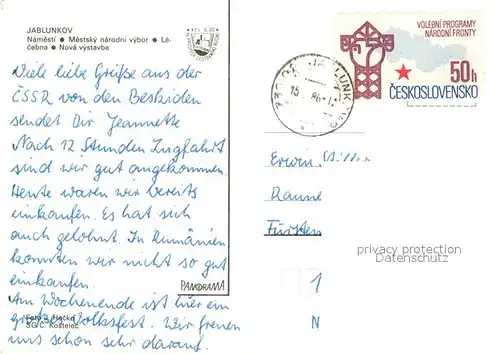 JABLUNKOV
Náměstí ● Městský národní výbor ● Lé-
čebna ● Nová výstavba
Viele liebe Grüße aus der
ČSSR von den Beskiden
sendet Dir Jeannette
Nach 12 Stunden Zugfahrt
sind wir gut angekommen.
Heute waren wir bereits
einkaufen. Es hat sich
auch gelohnt. In Rumänien
konnten wir nicht so gut
einkaufen.
Am Wochenende ist hier ein
großes Volksfest. Wir freuen
uns schon sehr darauf.
PANORAMA
SG/C. Kostelec
VOLEBNÍ PROGRAMY
NÁRODNÍ FRONTY
50h
ČESKOSLOVENSKO
JABLUNKOV
Erwin
Fürsten
privacy protection
Datenschutz
1
N